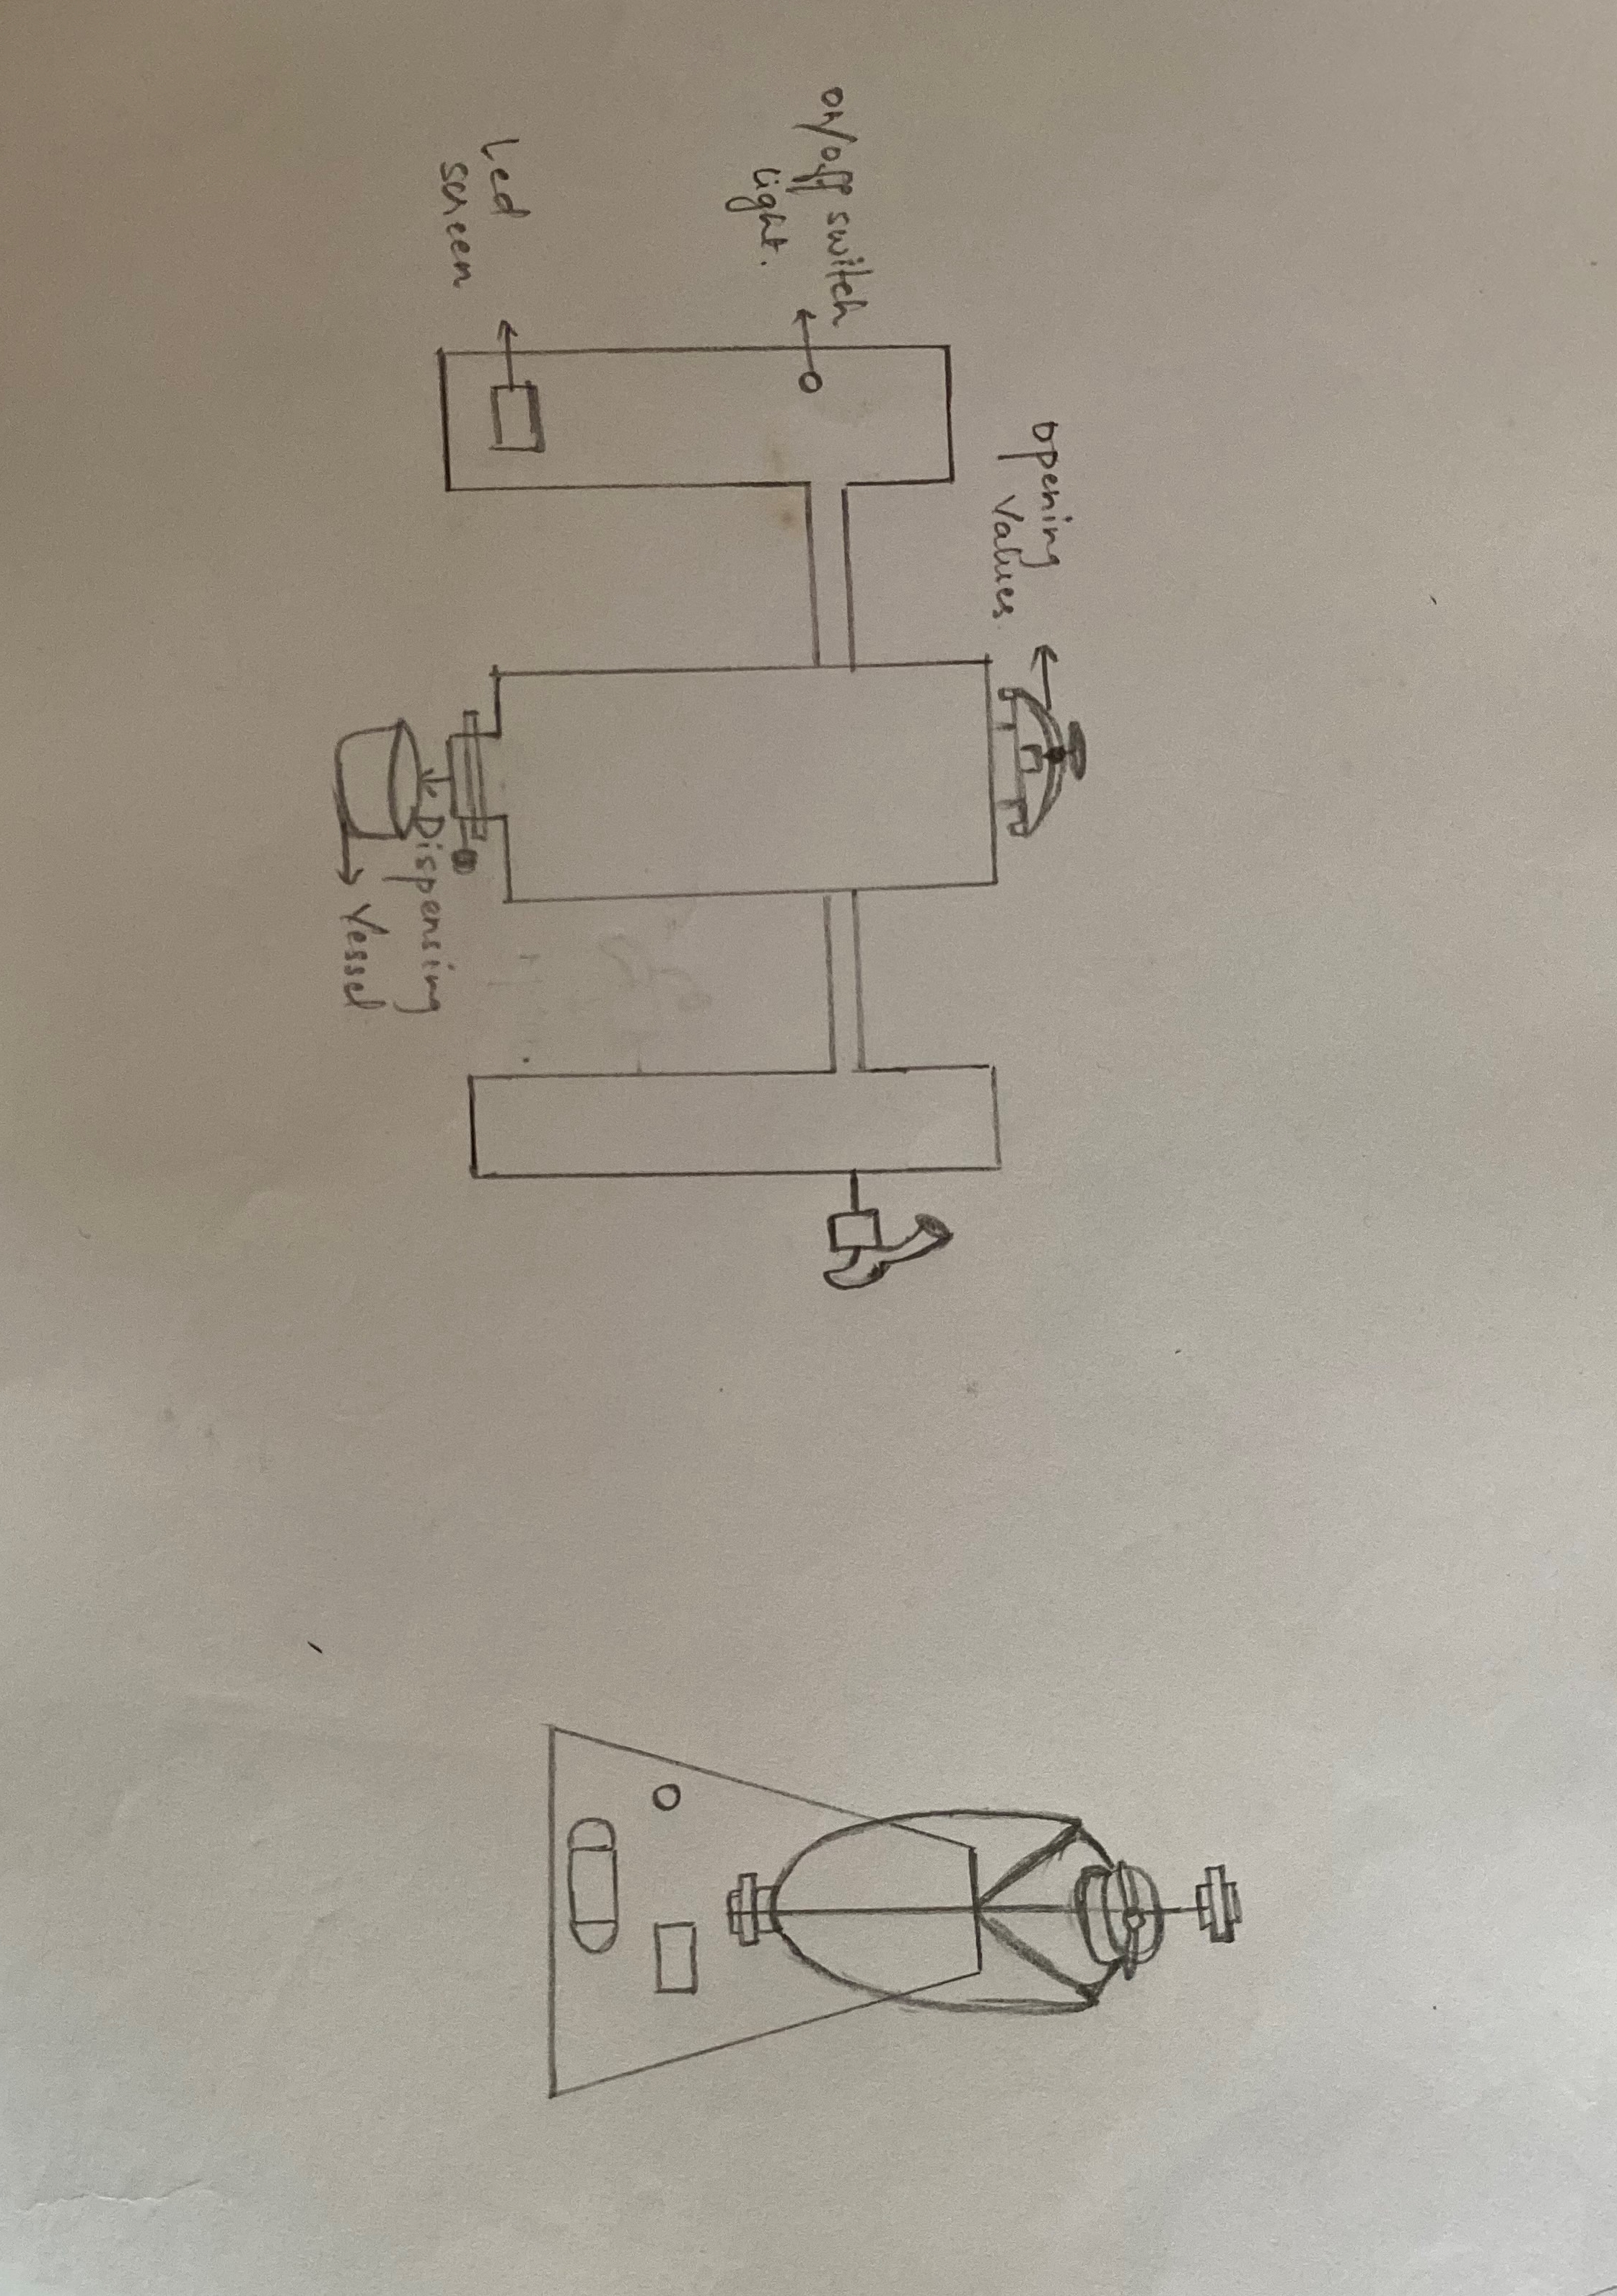 on/off switch
light.
Led
screen
opening
Values.
Dispensing
Vessel